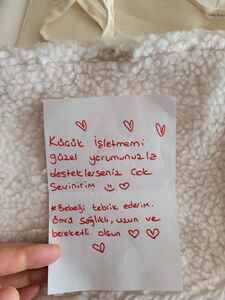 Küçük İşletmemi
güzel yorumunuzla
desteklerseniz Çok
Sevinirim
*Bebeği tebrik ederim.
Ömrü sağlıklı, uzun ve
bereketli olsun